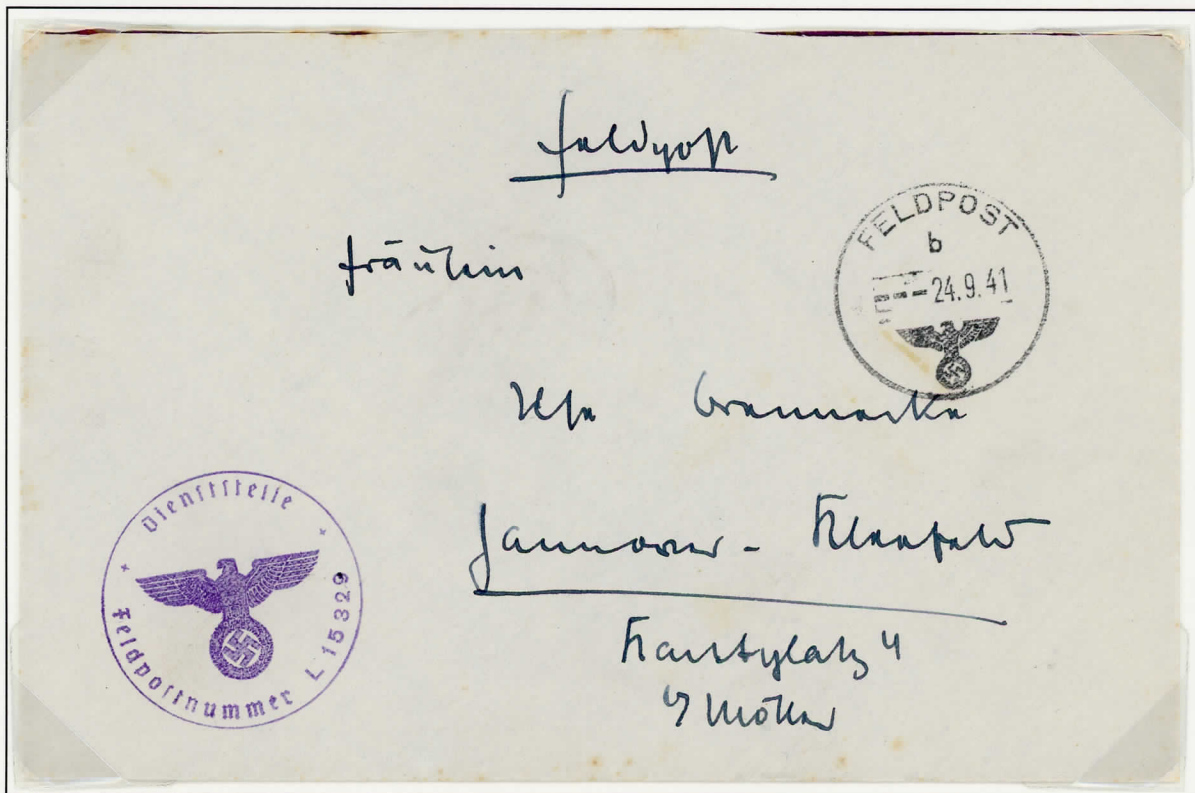 Feldpost
FELDPOST
b
24.9.41
Fräulein
Ilse
Hannover - Kleefeld
Kantplatz 4
b/ Möller
Dienststelle
Feldpostnummer L 15329